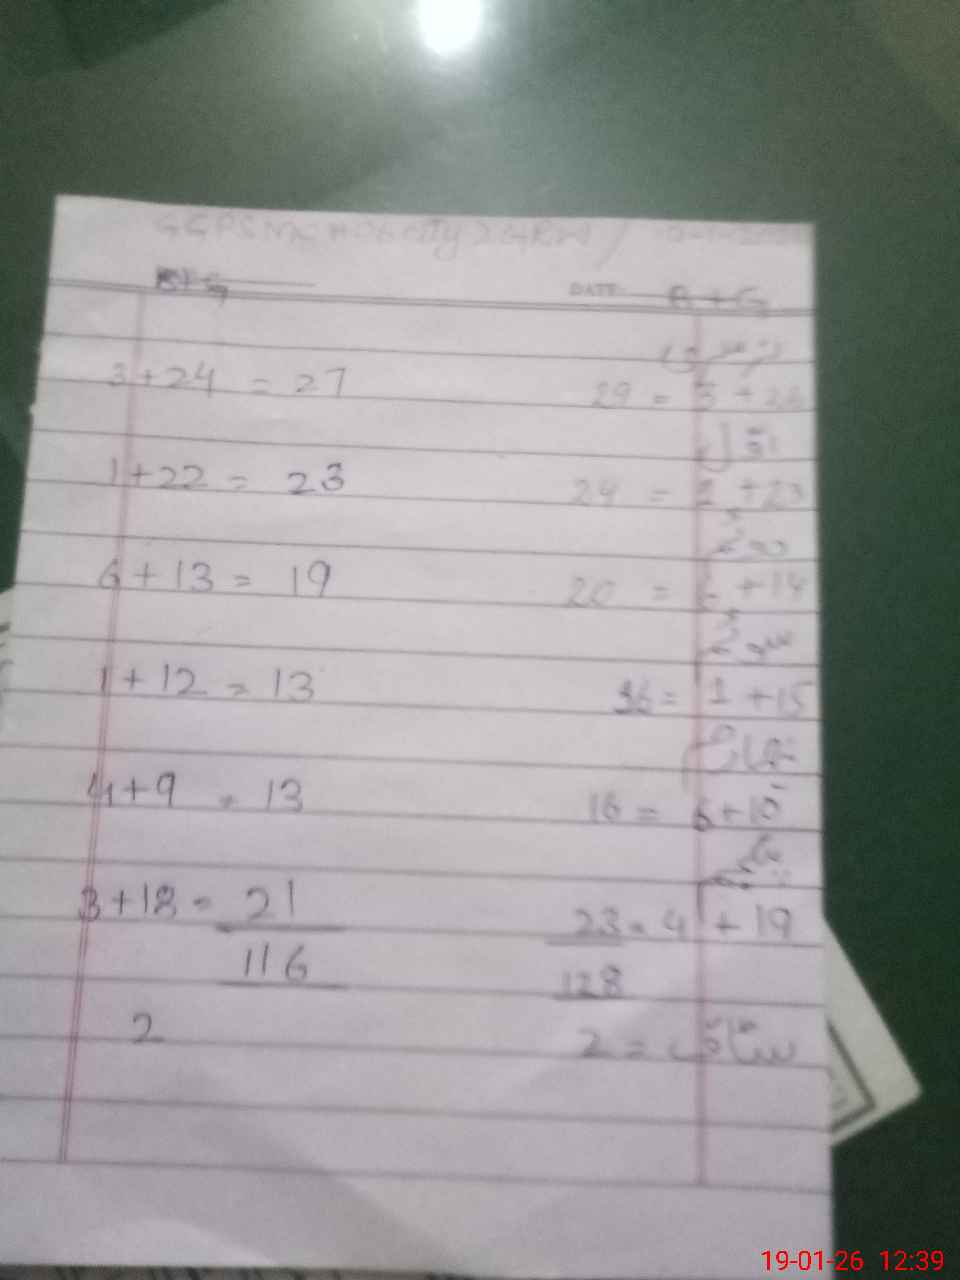 B+G DATE B+G
نرسری
3+24 = 27 29 = 3 +26
اول
1+22 = 23 24 = 1 +23
دوم
6+13 = 19 20 = 6 +14
سوم
1+12 = 13 16 = 1 +15
چہارم
4+9 = 13 16 = 6+10
پنجم
3+18 = 21 23 = 4 + 19
116 128
2 2 = سٹاف
19-01-26 12:39